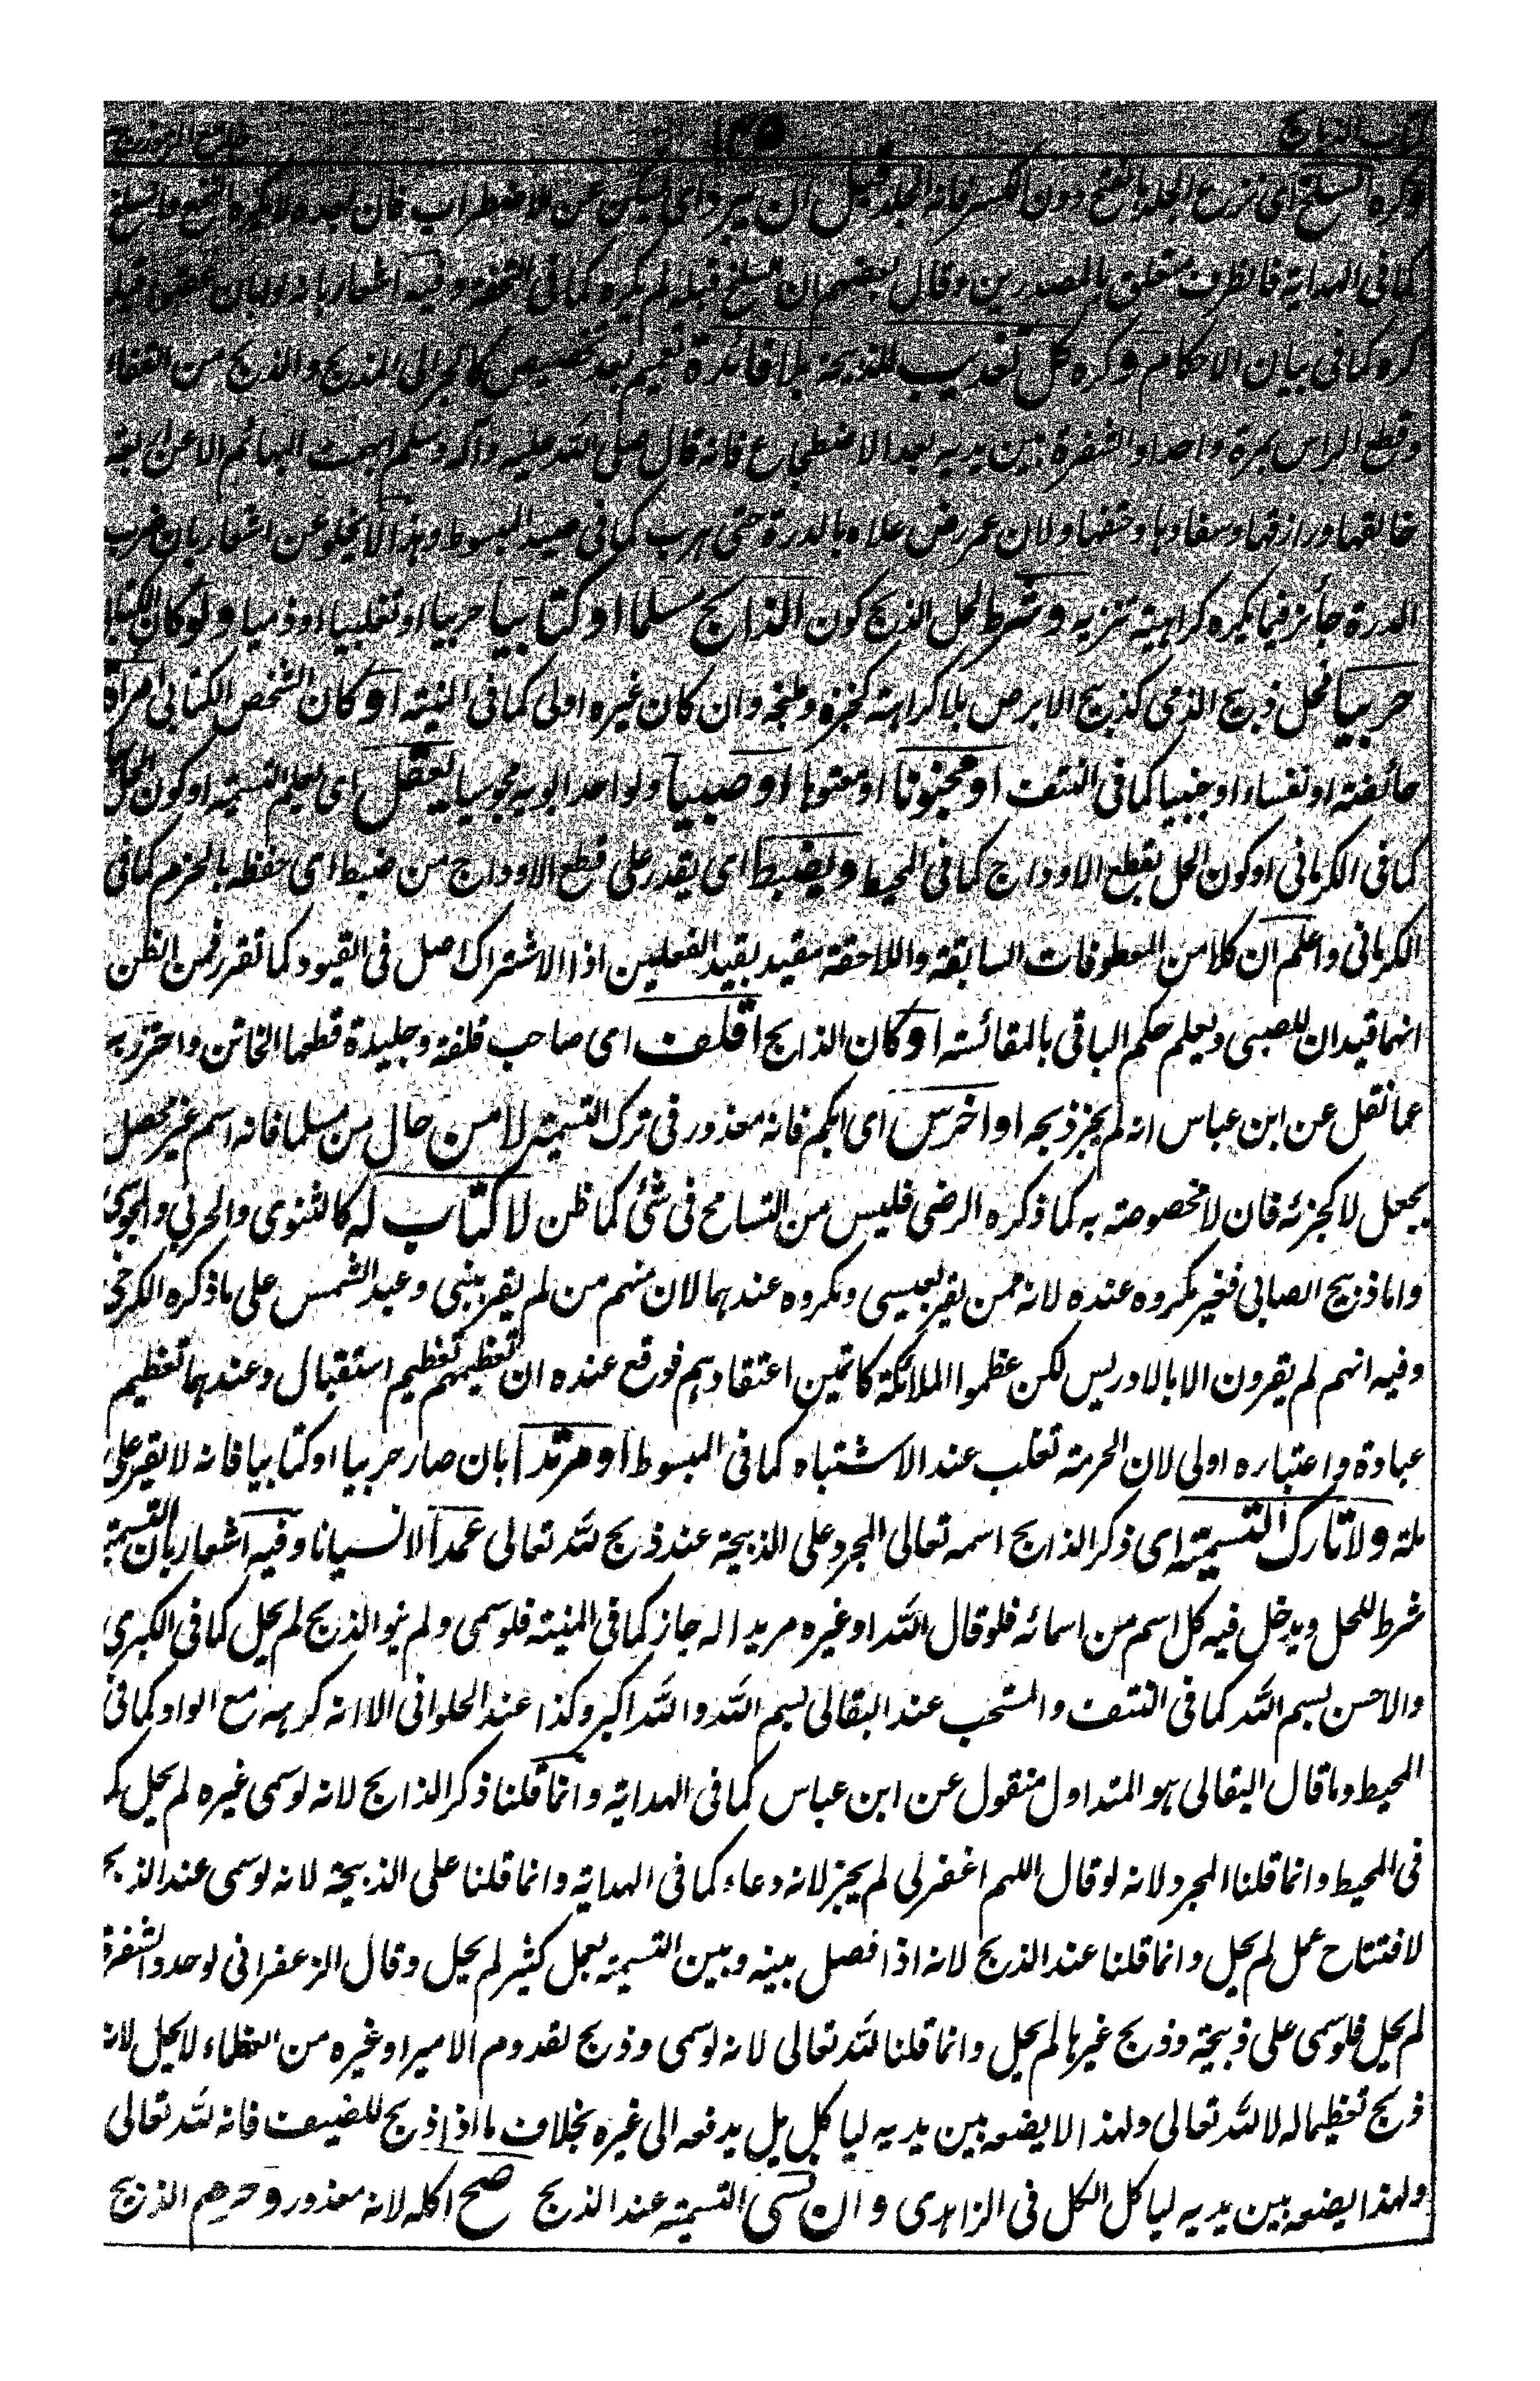 كتاب الذبائح ١٣٥ جامع الرموز
وكره السلخ اى نزع الجلد بالفتح دون الكسر فانه الجلد قبل ان يبرد اى يسكن عن الاضطراب فان بعده لا يكره النخع والسلخ
كما فى الهداية فالظرف متعلق بالمصدرين وقال بعضهم ان سلخ قبله لم يكره كما فى التحفة وفيه اشعار بانه لو ابان عضوا قبله
كره كما فى بيان الاحكام وكره كل تعذيب للذبيحة بلا فائدة تعميم بعد تخصيص كالجر الى المذبح والذبح من القفاء
وقطع الراس بمرة واحداد الشفرة بين يديه بعد الاضطجاع فانه قال صلى الله عليه وآله وسلم ابهمت البهائم الا عن اربعة
خالقها ورازقها وسفادها وحتفها ولان عمر رض علاه بالدرة حتى هرب كما فى صيد المبسوط وهذا لا يخلو عن اشعار بان ضرب
الدرة جائز فيما يكره كراهية تنزيه وشرط لحل الذبح كون الذابح مسلما او كتابيا حربيا او تغلبيا او ذميا ولو كان الكتابى
حربيا فحل ذبح الذمى كذبح الابرص بلا كراهة كخبزه وطبخه وان كان غيره اولى كما فى المنية او كان الشخص الكتابى امرأة
حائضة او نفساء او جنبيا كما فى النتف او مجنونا او معتوها او صبيا ولو احد ابويه مجوسيا يعقل اى يعلم التسمية او كون الحل
كما فى الكرمانى او كون الحل بقطع الاوداج كما فى المحيط ويضبط اى يقدر على قطع الاوداج من ضبط اى حفظه بالحزم كما فى
الكرمانى واعلم ان كلا من المعطوفات السابقة واللاحقة مقيد بقيد الفعلين اذ الاشتراك اصل فى القيود كما تقرر فمن الظن
انهما قيدان للصبى ويعلم حكم الباقى بالمقائسة او كان الذابح اقلف اى صاحب قلفة وجليدة قطعها الخاتن واحترز به
عما نقل عن ابن عباس انه لم يجز ذبحه او اخرس اى ابكم فانه معذور فى ترك التسمية لا من حال من مسلما فانه اسم غير محصل
يجعل لا كجزئه فان لا مخصوصة به كما ذكره الرضى فليس من التسامح فى شئ كما ظن لا كتاب له كالثنوى والحربى والمجوسى
واما ذبح الصابى فغير مكروه عنده لانه ممن يقر بعيسى ومكروه عندهما لان منهم من لم يقر بنبى وعبد الشمس على ما ذكره الكرخى
وفيه انهم لم يقرون الا بالادريس لكن عظموا الملائكة كاتمين اعتقادهم فوقع عنده ان تعظيمهم تعظيم استقبال وعندهما تعظيم
عبادة واعتباره اولى لان الحرمة تغلب عند الاشتباه كما فى المبسوط او مرتدا بان صار حربيا او كتابيا فانه لا يقر على
ملة ولا تارك التسمية اى ذكر الذابح اسمه تعالى المجرد على الذبيحة عند ذبح لله تعالى عمدا لا نسيانا وفيه اشعار بان التسمية
شرط للحل ويدخل فيه كل اسم من اسمائه فلو قال الله او غيره مريدا له جاز كما فى المنية فلو سمى ولم ينو الذبح لم يحل كما فى الكبرى
والاحسن بسم الله كما فى النتف والمستحب عند البقالى بسم الله والله اكبر وكذا عند الحلوانى الا انه كرهه مع الواو كما فى
المحيط وما قال البقالى هو المتداول منقول عن ابن عباس كما فى الهداية وانما قلنا ذكر الذابح لانه لو سمى غيره لم يحل كما
فى المحيط وانما قلنا المجرد لانه لو قال اللهم اغفر لى لم يجز لانه دعاء كما فى الهداية وانما قلنا على الذبيحة لانه لو سمى عند الذبح
لافتتاح عمل لم يحل وانما قلنا عند الذبح لانه اذا فصل بينه وبين التسمية بعمل كثير لم يحل وقال الزعفرانى لو حدد الشفرة
لم يحل فلو سمى على ذبيحة وذبح غيرها لم يحل وانما قلنا لله تعالى لانه لو سمى وذبح لقدوم الامير او غيره من العظماء لا يحل لانه
ذبح تعظيما له لا لله تعالى ولهذا لا يضعه بين يديه ليأكل بل يدفعه الى غيره بخلاف ما اذا ذبح للضيف فانه لله تعالى
ولهذا يضعه بين يديه ليأكل الكل فى الزاهدى وان نسى التسمية عند الذبح صح اكله لانه معذور وحرم الذبح